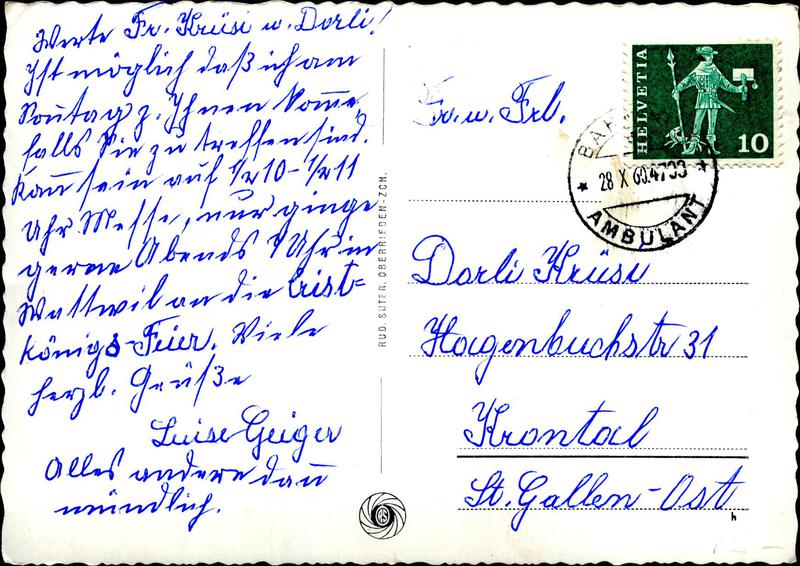 Werte Fr. Krüsi u. Dorli!
Ist möglich daß ich am
Sonntag z. Ihnen komme,
falls Sie zu treffen sind.
Kann sein auf 1/2 10 - 1/2 11
Uhr Messe, nur ginge
gerne Abends Uhr in
Wattwil an die Crist-
königs-Feier. Viele
herzl. Grüße
Luise Geiger
Alles andere dann
mündlich.
RUD. SUTER, OBERRIEDEN-ZCH.
RS
Fr. u. Frl.
Dorli Krüsi
Hagenbuchstr 31
Krontal
St. Gallen-Ost
h
HELVETIA
10
28 X 60.4733
AMBULANT